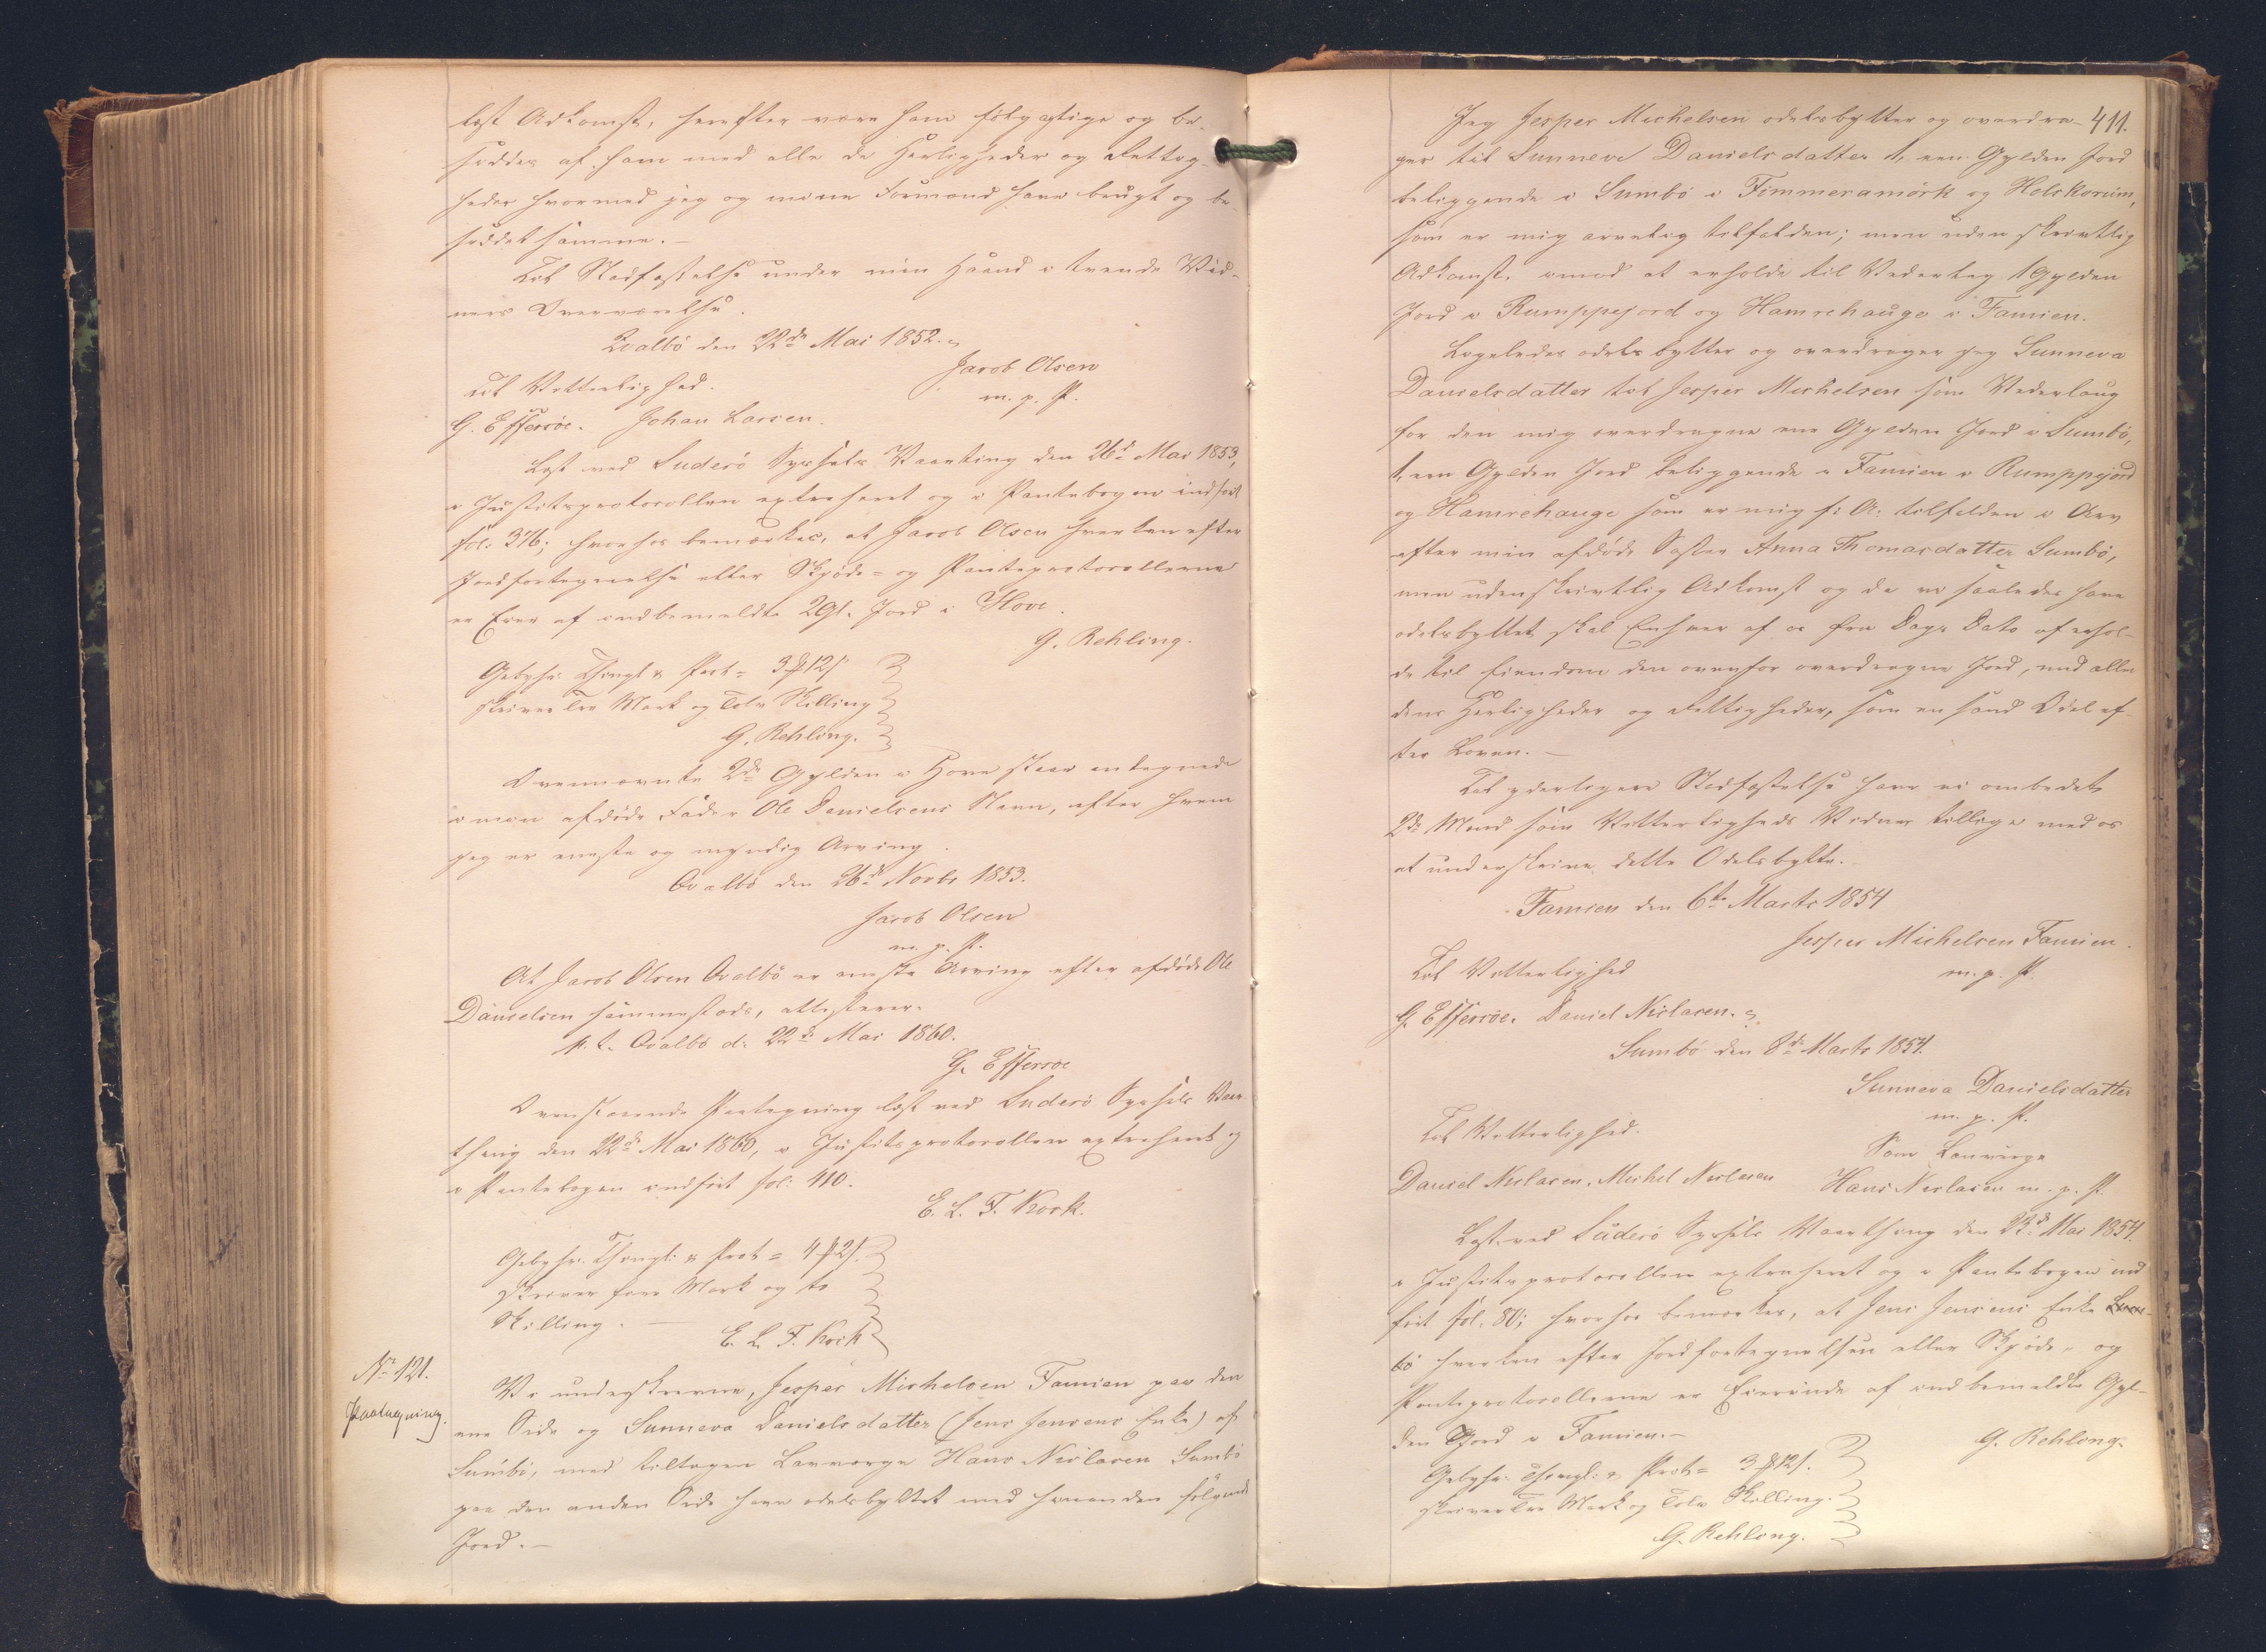 læst Adkomst, herefter være ham følgagtige og be-
siddes af ham med alle de Herligheder og Rettig-
heder hvormed jeg og mine Formænd have brugt og be-
siddet samme.-
Til Stadfæstelse under min Haand i tvende Vid-
ners Overværelse.
Qvalbö den 22de Mai 1852.
Jacob Olsen
m. p. P.
til Vitterlighed.
G. Effersöe. Johan Larsen.
Læst ved Suderö Syssels Vaarting den 26de Mai 1853,
i Justitsprotocollen extraheret og i Pantebogen indført
fol: 376; hvorhos bemærkes, at Jacob Olsen hverken efter
Jordfortegnelse eller Skjöde- og Panteprotocollerne
er Eier af indbemeldte 2 Gl. Jord i Hove.
G. Rehling.
Gebyhr: Thingl & Prot = 3 ₰ 12 s
skriver tre Mark og tolv Skilling
G. Rehling.
Ovennævnte 2de Gylden i Hove staar antegnede
i min afdøde Fader Ole Danielsens Navn, efter hvem
jeg er eneste og myndig Arving.
Qvalbö den 26de Novbr 1853.
Jacob Olsen
m. p. P.
At Jacob Olsen Qvalbö er eneste Arving efter afdöde Ole
Danielsen sammesteds, attesterer.
p. t. Qvalbö d: 22de Mai 1860.
G. Effersöe
Ovenstaaende Paategning læst ved Suderö Syssels Vaar-
thing den 22de Mai 1860, i Justitsprotocollen extraheret og
i Pantebogen indfört fol: 410.
E. L. T. Kock.
Gebyhr. Thingl: & Prot = 4 ₰ 2 s.
skriver fire Mark og to
Skilling.-
E. L. T. Kock
No 121.
Paategning.
Vi undeskrevne, Jesper Michelsen Famien paa den
ene Side og Sunneva Danielsdatter (Jens Jensens Enke) af
Sumbö, med tiltagen Lavværge Hans Niclasen Sumbö
paa den anden Side have odelsbyttet med hinanden følgende
Jord.-
411.
Jeg Jesper Michelsen odelsbytter og overdra-
ger til Sunneve Danielsdatter 1, een Gylden Jord
beliggende i Sumbö i Timmeramörk og Holskorum,
som er mig arvelig tilfalden; men uden skrivtlig
Adkomst, imod at erholde til Vederlag 1 Gylden
Jord i Rumppejord og Hamrehauge i Famien.
Ligeledes odelsbytter og overdrager jeg Sunneva
Danielsdatter til Jesper Michelsen som Vederlaug
for den mig overdragne ene Gylden Jord i Sumbö,
1, een Gylden Jord beliggende i Famien i Rumppejord
og Hamrehauge som er mig f: A: tilfalden i Arv
efter min afdöde Söster Anna Thomasdatter Sumbö,
men uden skrivtlig Adkomst og da vi saaledes have
odelsbyttet skal Enhver af os fra Dags Dato af erhol-
de til Eiendom den ovenfor overdragne Jord, med alle
dens Herligheder og Rettigheder, som en sand Odel ef-
ter Loven.-
Til yderligere Stadfæstelse have vi ombedet
2de Mænd som Vitterligheds Vidner tillige med os
at underskrive dette Odelsbytte.-
Famien den 6te Marts 1854
Jesper Michelsen Famien.
m. p. P.
Til Vitterlighed
G. Effersöe. Daniel Niclasen.
Sumbö den 8de Marts 1854.
Sunneva Danielsdatter
m. p. P.
Til Vitterlighed.
Som Lauværge
Daniel Niclasen. Michel Niclasen
Hans Niclasen m. p. P.
Læst ved Suderö Syssels Vaarthing den 23de Mai 1854.
i Justitsprotocollen extraheret og i Pantebogen ind
fört fol. 80; hvorhos bemærkes, at Jens Jensens Enke
hverken efter Jordfortegnelsen eller Skjöde- og
Panteprotocollerne er Eierinde af indbemeldte Gyl-
den Jord i Famien.-
G. Rehling.
Gebyhr: Thingl: & Prot = 3 ₰ 12 s.
skriver tre Mark og tolv Skilling.
G. Rehling.